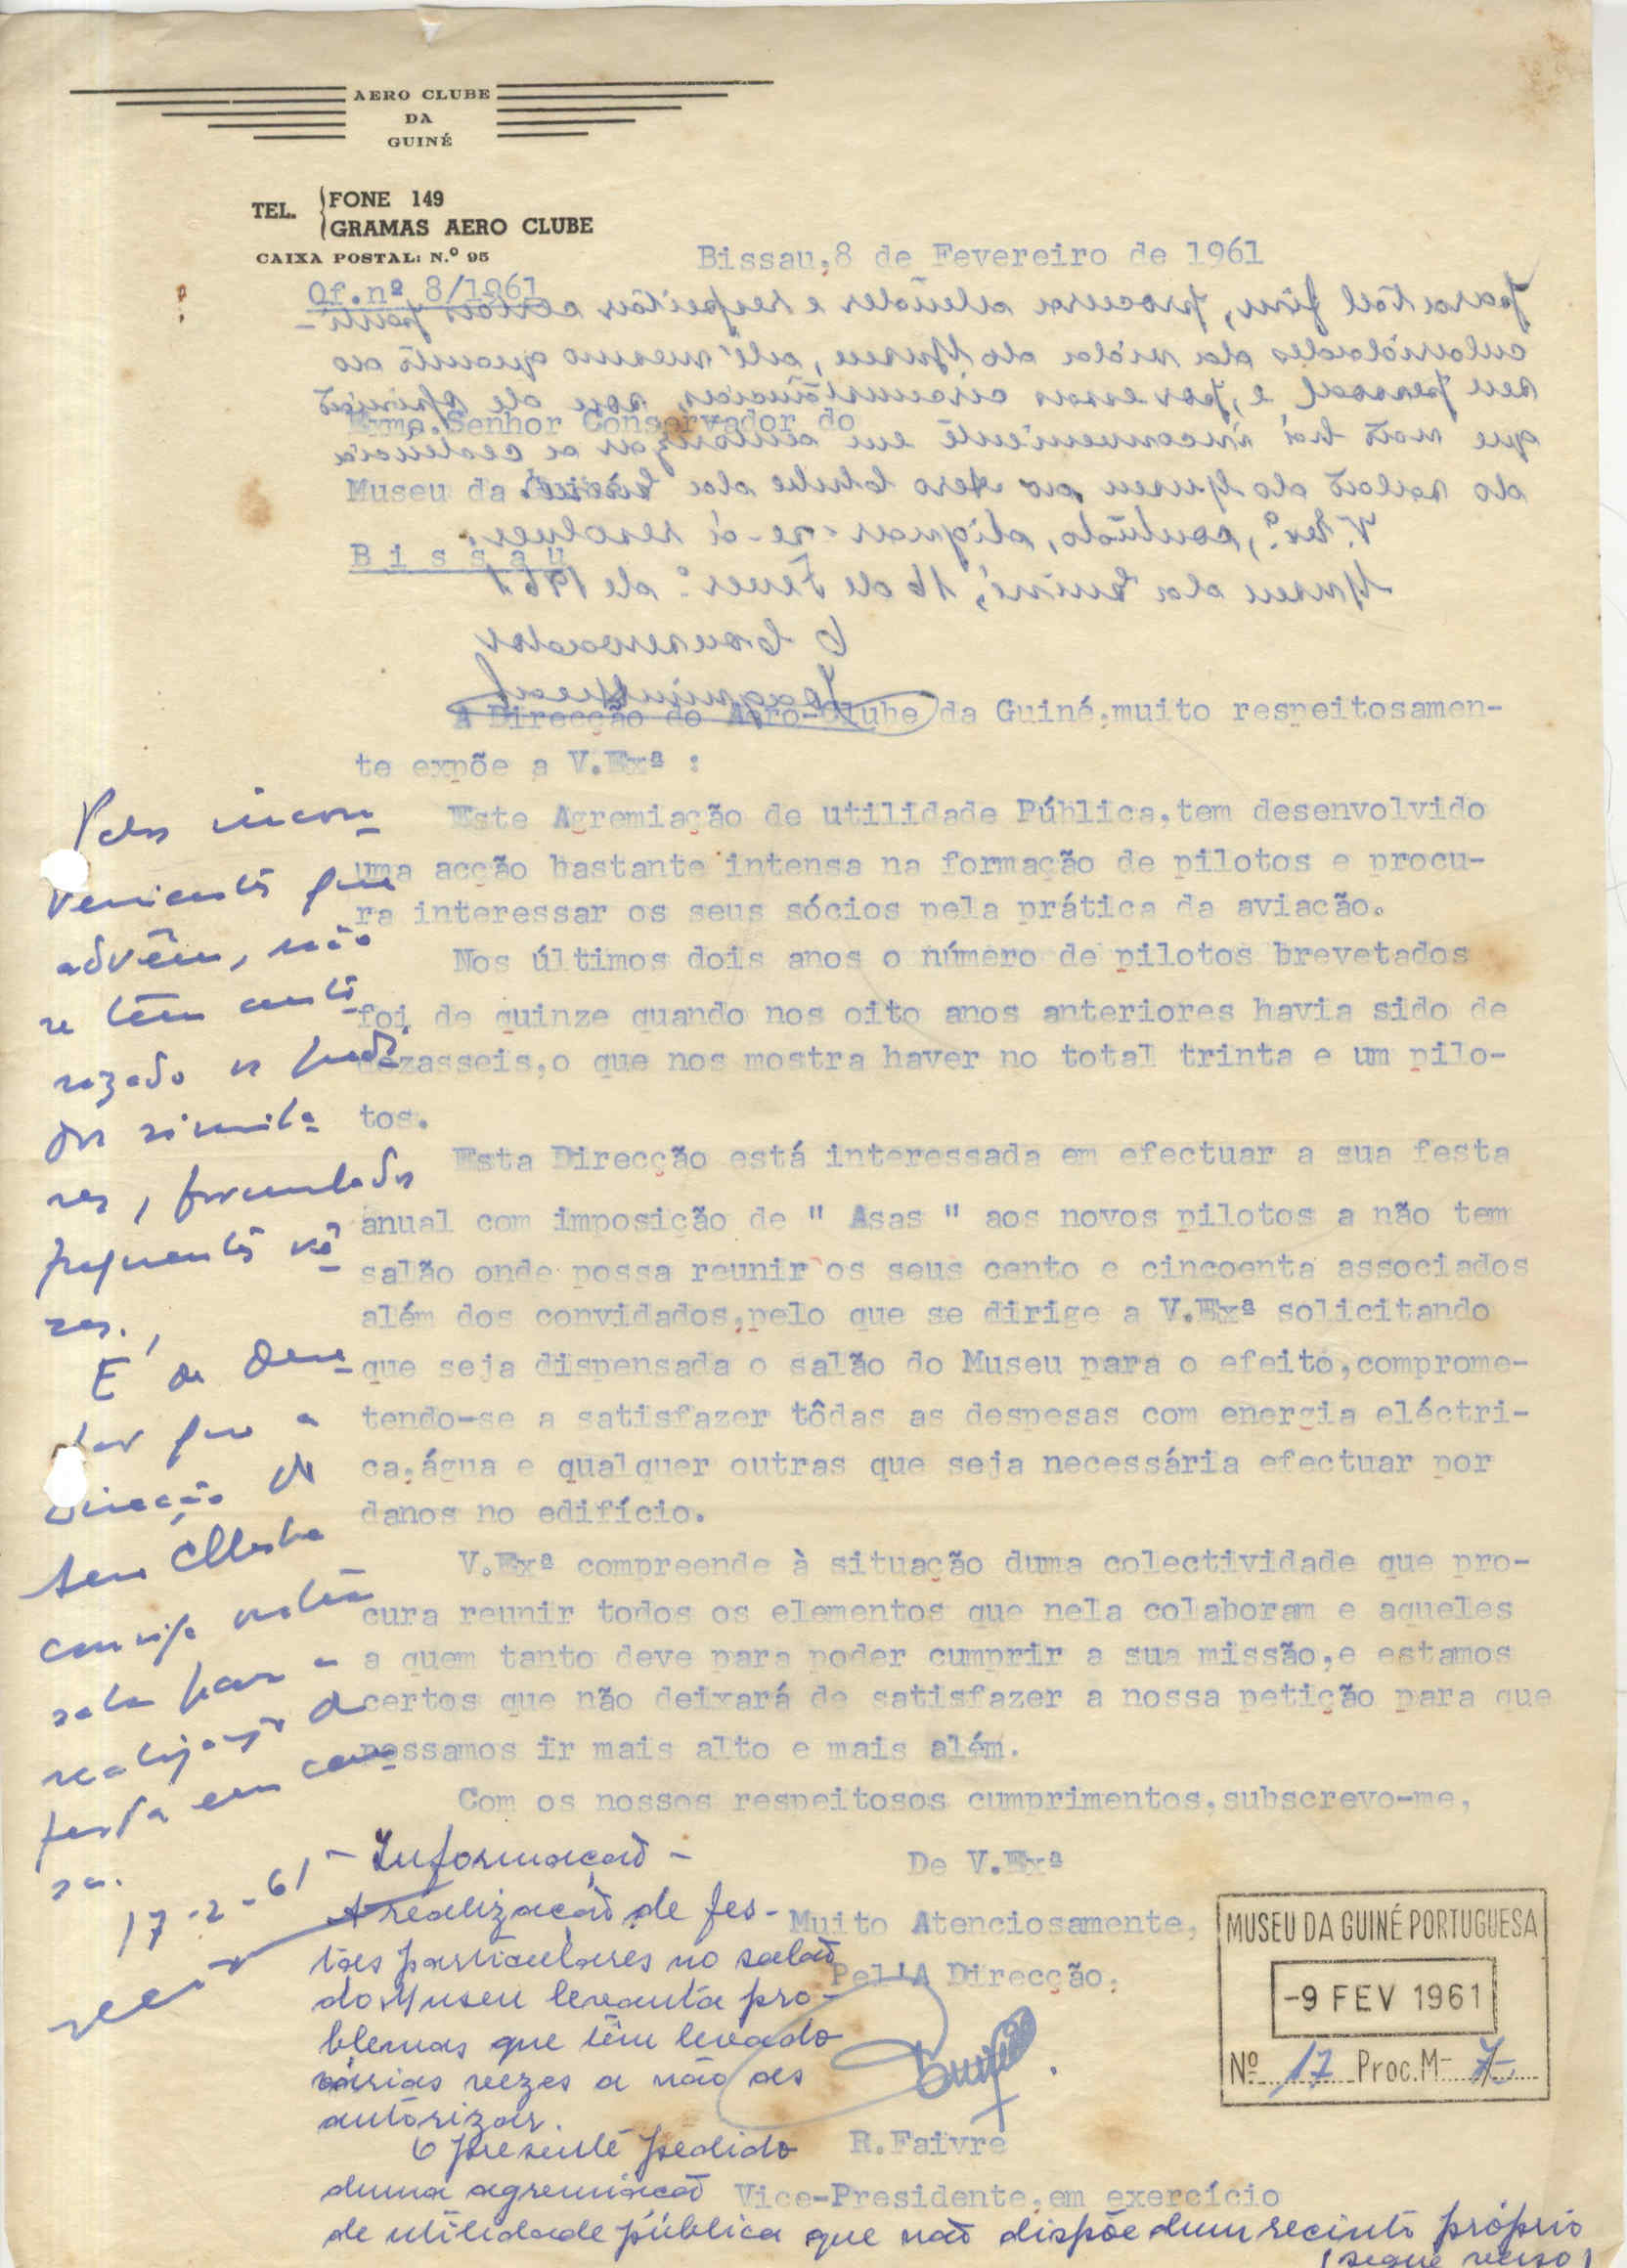 AERO CLUBE
DA
GUINÉ
TEL. FONE 149
GRAMAS AERO CLUBE
CAIXA POSTAL: N.º 95
Bissau,8 de Fevereiro de 1961
Of.nº 8/1961
para tal fim, procura atender e respeitar certas parti-
cularidades da vida do Museu, até mesmo quanto ao
seu pessoal e, por essas circunstâncias, sou de opinião
Exmo.Senhor Conservador do
que não há inconveniente em autorizar a cedência
Museu da Guiné
do salão do Museu ao Aero Clube da Guiné.
V. Ex.ª, contudo, dignar-se-á resolver.
B i s s a u
Museu da Guiné, 16 de Fever.º de 1961
O Conservador
A Direcção do Aero-Clube da Guiné,muito respeitosamen-
te expõe a V.Exª :
Este Agremiação de utilidade Pública,tem desenvolvido
uma acção bastante intensa na formação de pilotos e procu-
ra interessar os seus sócios pela prática da aviação.
Nos últimos dois anos o número de pilotos brevetados
foi de quinze quando nos oito anos anteriores havia sido de
dezasseis,o que nos mostra haver no total trinta e um pilo-
tos.
Esta Direcção está interessada em efectuar a sua festa
anual com imposição de " Asas " aos novos pilotos a não tem
salão onde possa reunir os seus cento e cincoenta associados
além dos convidados,pelo que se dirige a V.Exª solicitando
que seja dispensada o salão do Museu para o efeito,comprome-
tendo-se a satisfazer tôdas as despesas com energia eléctri-
ca,água e qualquer outras que seja necessária efectuar por
danos no edifício.
V.Exª compreende à situação duma colectividade que pro-
cura reunir todos os elementos que nela colaboram e aqueles
a quem tanto deve para poder cumprir a sua missão,e estamos
certos que não deixará de satisfazer a nossa petição para que
possamos ir mais alto e mais além.
Com os nossos respeitosos cumprimentos,subscrevo-me,
De V.Exª
Muito Atenciosamente,
Pel'A Direcção,
R.Faivre
Vice-Presidente,em exercício
Pelos incon-
venientes que
advêm, não
se têm auto-
rizado os pedi-
dos simila-
res, formulados
frequentes vê-
zes.
É de
que a
Direcção do
Aero Clube
consiga outra
sala para a
realização da
festa em cau-
sa.
17-2-61
- Informação -
A realização de fes-
tas particulares no salão
do Museu levanta pro-
blemas que têm levado
várias vezes a não as
autorizar.
O presente pedido
duma agremiação
de utilidade pública que não dispõe dum recinto próprio
(segue verso)
MUSEU DA GUINÉ PORTUGUESA
-9 FEV 1961
Nº 17 Proc.M- 7